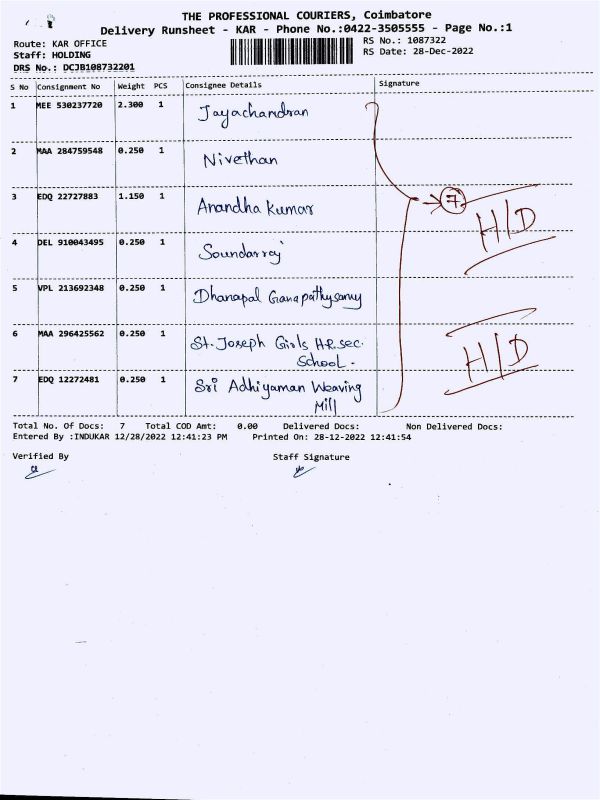 THE PROFESSIONAL COURIERS, Coimbatore
Delivery Runsheet - KAR - Phone No.:0422-3505555 - Page No.:1
Route: KAR OFFICE
RS No.: 1087322
Staff: HOLDING
RS Date: 28-Dec-2022
DRS No.: DCJB108732201
S No Consignment No Weight PCS Consignee Details Signature
1 MEE 530237720 2.300 1 Jayachandran
2 MAA 284759548 0.250 1 Nivethan
3 EDQ 22727883 1.150 1 Anandha Kumar
7
H/D
4 DEL 910043495 0.250 1 Soundarraj
5 VPL 213692348 0.250 1 Dhanapal Ganapathysamy
6 MAA 296425562 0.250 1 St. Joseph Girls HR.sec.
School -
H/D
7 EDQ 12272481 0.250 1 Sri Adhiyaman Weaving
Mill
Total No. Of Docs: 7 Total COD Amt: 0.00 Delivered Docs: Non Delivered Docs:
Entered By :INDUKAR 12/28/2022 12:41:23 PM Printed On: 28-12-2022 12:41:54
Verified By Staff Signature